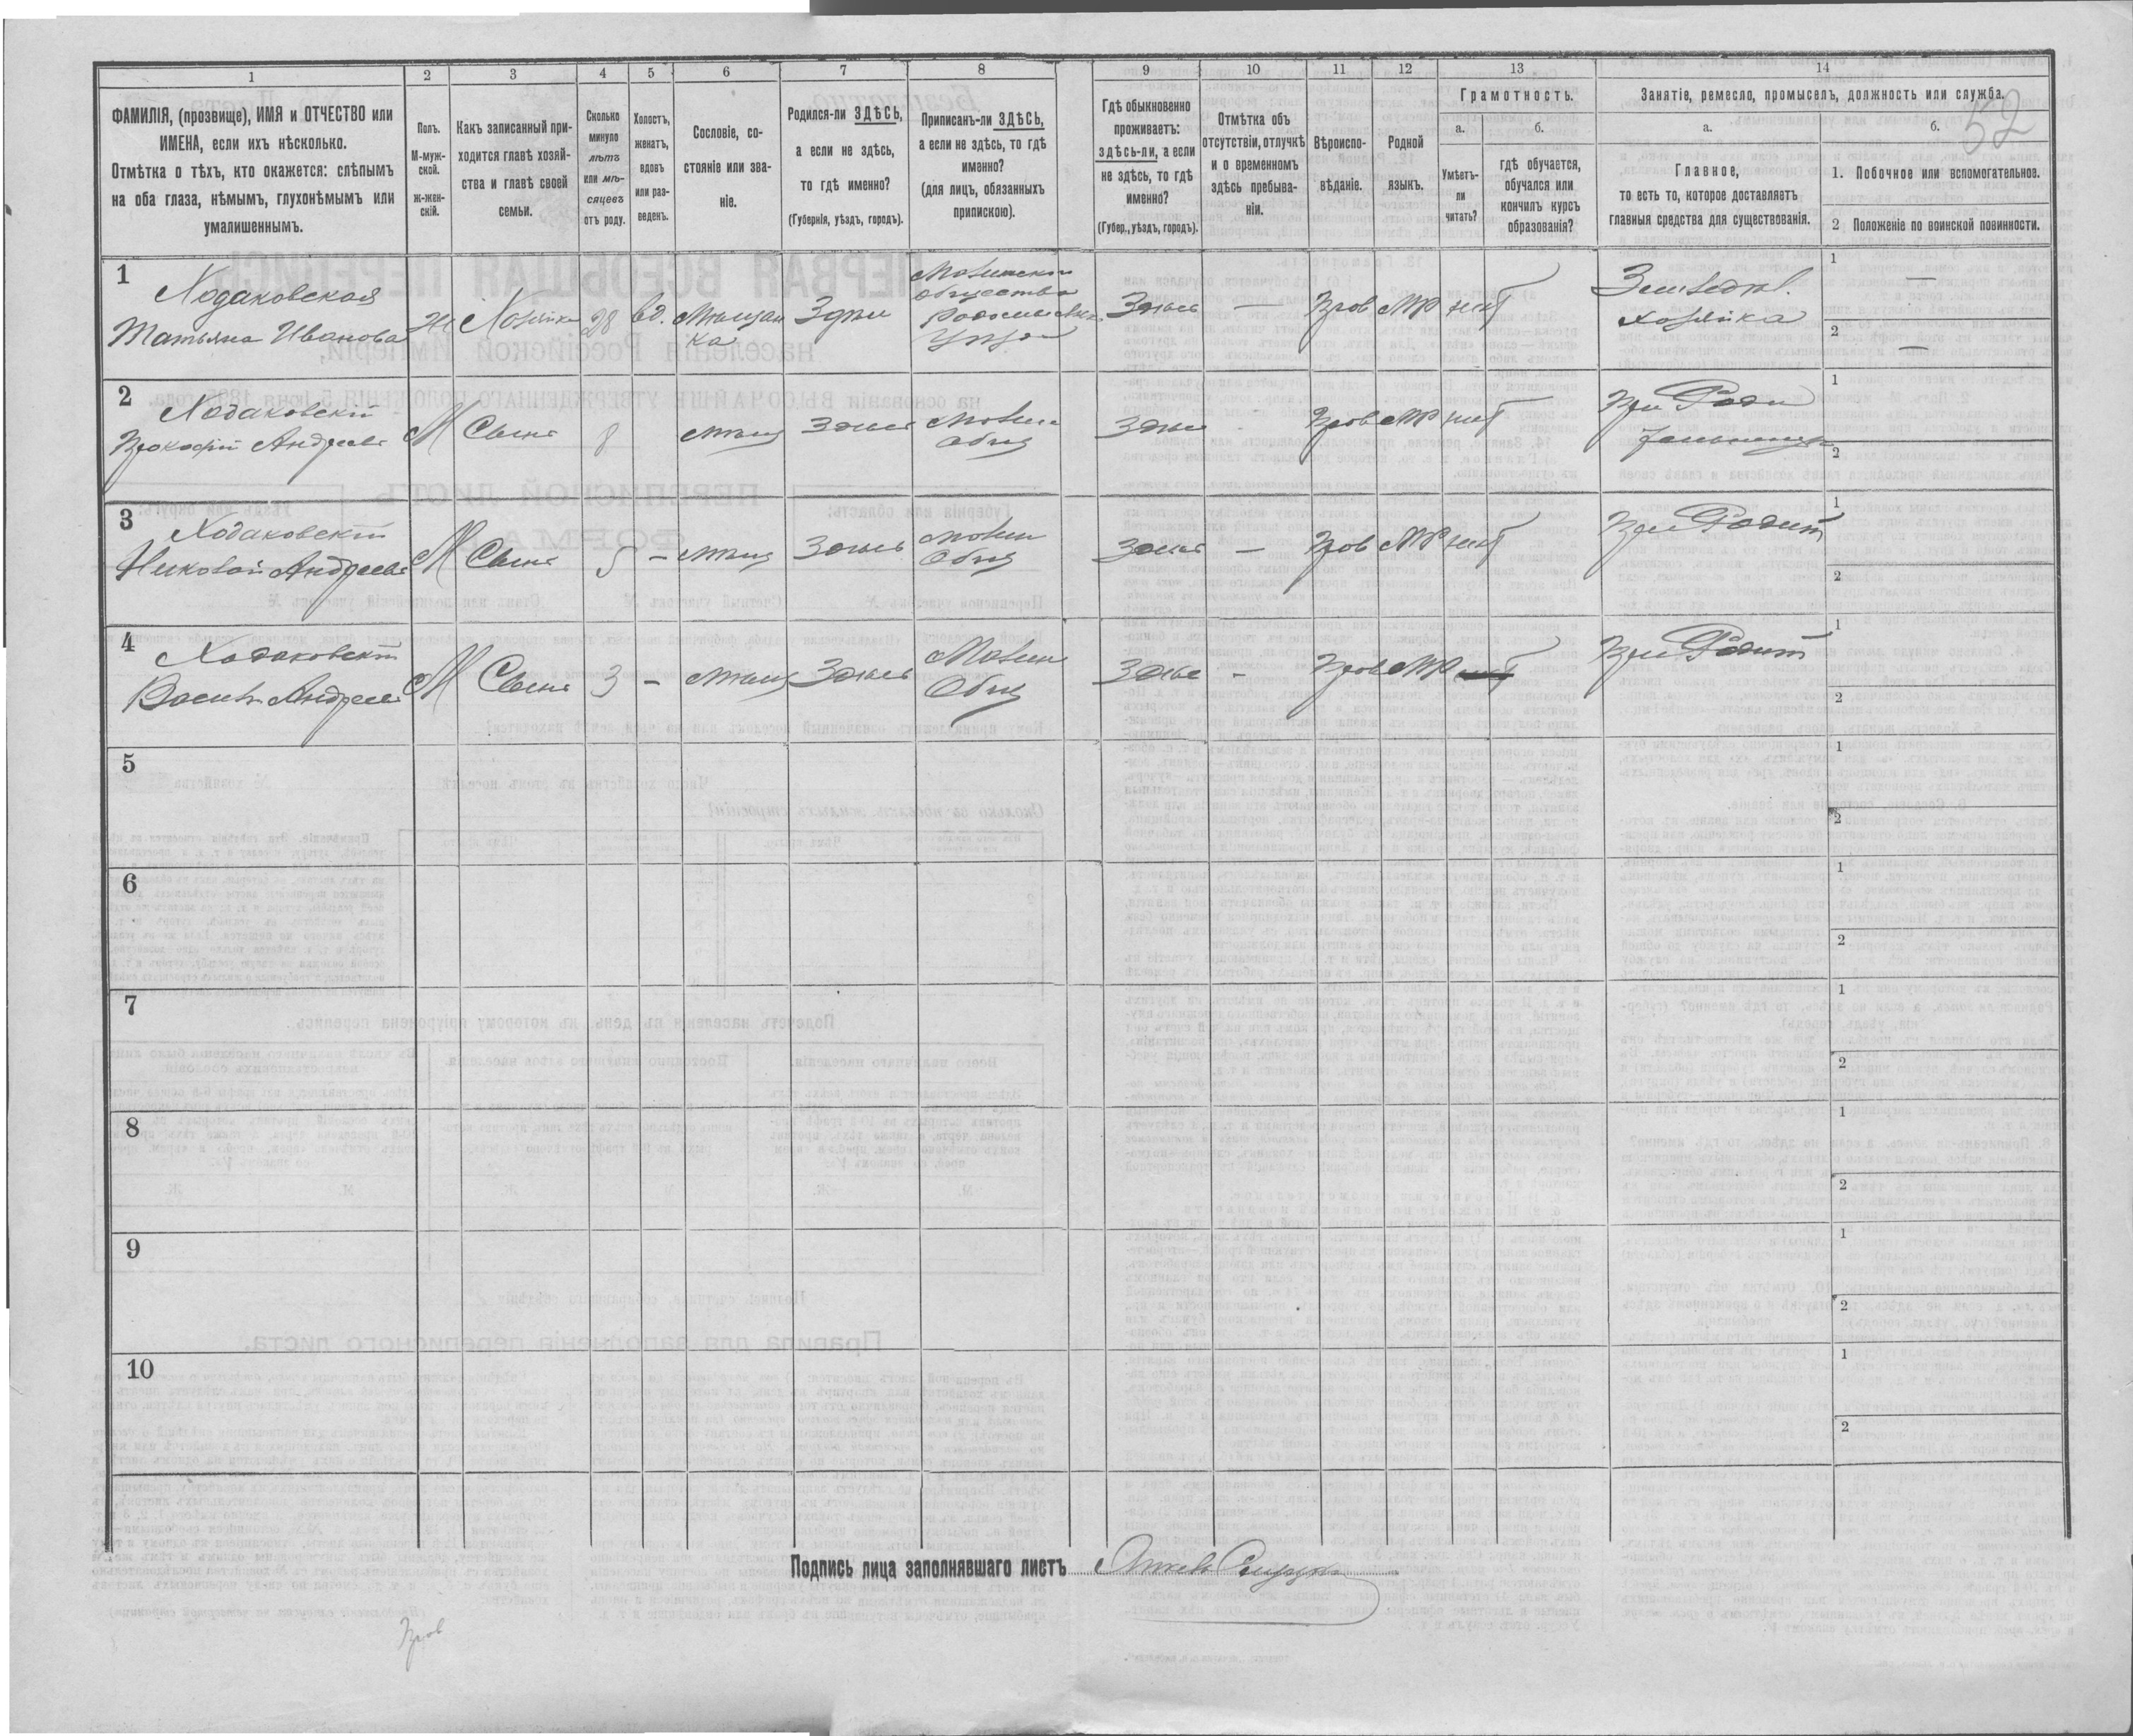 52
1 2 3 4 5 6 7 8 9 10 11 12 13 14
ФАМИЛІЯ, (прозвище), ИМЯ и ОТЧЕСТВО или
ИМЕНА, если ихъ нѣсколько.
Отмѣтка о тѣхъ, кто окажется: слѣпымъ
на оба глаза, нѣмымъ, глухонѣмымъ или
умалишеннымъ.
Полъ.
М-муж-
ской.
Ж-жен-
скій.
Какъ записанный при-
ходится главѣ хозяй-
ства и главѣ своей
семьи.
Сколько
минуло
лѣтъ
или мѣ-
сяцевъ
отъ роду.
Холостъ,
женатъ,
вдовъ
или раз-
веденъ.
Сословіе, со-
стояніе или зва-
ніе.
Родился-ли ЗДѢСЬ,
а если не здѣсь,
то гдѣ именно?
(Губернія, уѣздъ, городъ).
Приписанъ-ли ЗДѢСЬ,
а если не здѣсь, то гдѣ
именно?
(для лицъ, обязанныхъ
припискою).
Гдѣ обыкновенно
проживаетъ:
здѣсь-ли, а если
не здѣсь, то гдѣ
именно?
(Губер., уѣздъ, городъ).
Отмѣтка объ
отсутствіи, отлучкѣ
и о временномъ
здѣсь пребыва-
ніи.
Вѣроиспо-
вѣданіе.
Родной
языкъ.
Грамотность.
а.
Умѣетъ-
ли
читать?
б.
гдѣ обучается,
обучался или
кончилъ курсъ
образованія?
Занятіе, ремесло, промыселъ, должность или служба.
а.
Главное,
то есть то, которое доставляетъ
главныя средства для существованія.
б.
1. Побочное или вспомогательное.
2 Положеніе по воинской повинности.
1
Ходаковская
Татьяна Иванова
Ж Хозяйка 28 вд. Мѣщан
ка
Здѣсь
общества
Здѣсь — Прав МР нѣт
хозяйка
1 —
2 —
2
Ходаковскій
Прокофій Андреев
М Сынъ 8 мѣщ Здѣсь
Общ
Здѣсь - Прав МР нѣт
При Роди
1
2
3
Ходаковскій
Николай Андреев
М Сынъ 5 — мѣщ Здѣсь
Общ
Здѣсь — Прав МР нѣт
При Родит
1
2
4
Ходаковскій
Андреев
М Сынъ 3 — мѣщ Здѣсь
Общ
Здѣсь - Прав МР
При Родит
1
2
5
1
2
6
1
2
7
1
2
8
1
2
9
1
2
10
1
2
Подпись лица заполнявшаго листъ
Прав